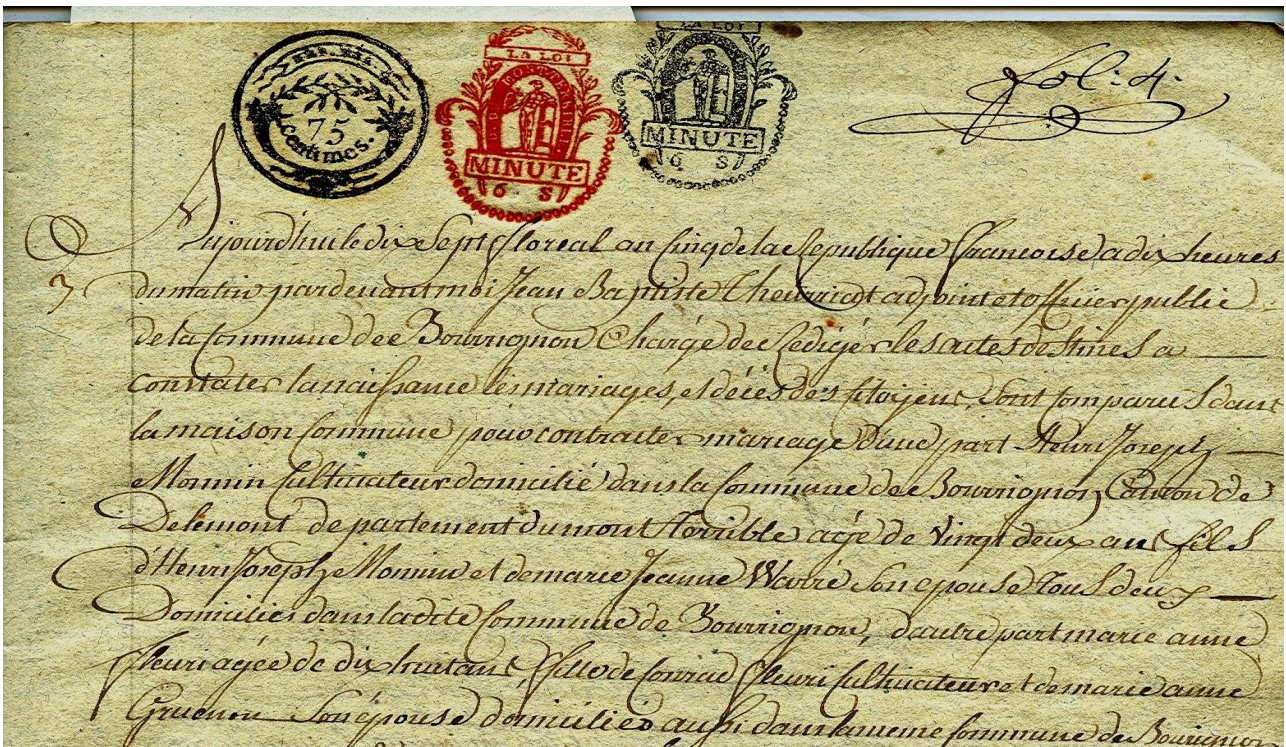 75
centimes.
LA LOI
MINUTE
6 S
LA LOI
MINUTE
6 S
fol: 4.
Aujourd'hui le dix Sept floreal an Cinq de la Republique francoise a dix heures
3
du matin pardevant moi Jean Baptiste Theurieat adjoint et officier public
de la Commune de Bourrignon Chargé de Redigér les actes destines a
constater la naissance les mariages, et décés des Citoijens, Sont Comparus dans
la maison Commune pour contracter mariage D'une part Henri Joseph
Monnin Cultivateur domicilié dans la Commune de Bourrignon Canton de
Delemont departement du mont Terrible agé de Vingt deux ans fils
d'Henri Joseph Monnin et de marie Jeanne Warré Son epouse tous deux
Domiciliés dans la dite Commune de Bourrignon, d'autre part marie anne
fleuri agée de dix huit ans, fille de Conrad fleuri Cultivateur et de marie anne
Son épouse domiciliés aussi dans la meme Commune de Bourrignon